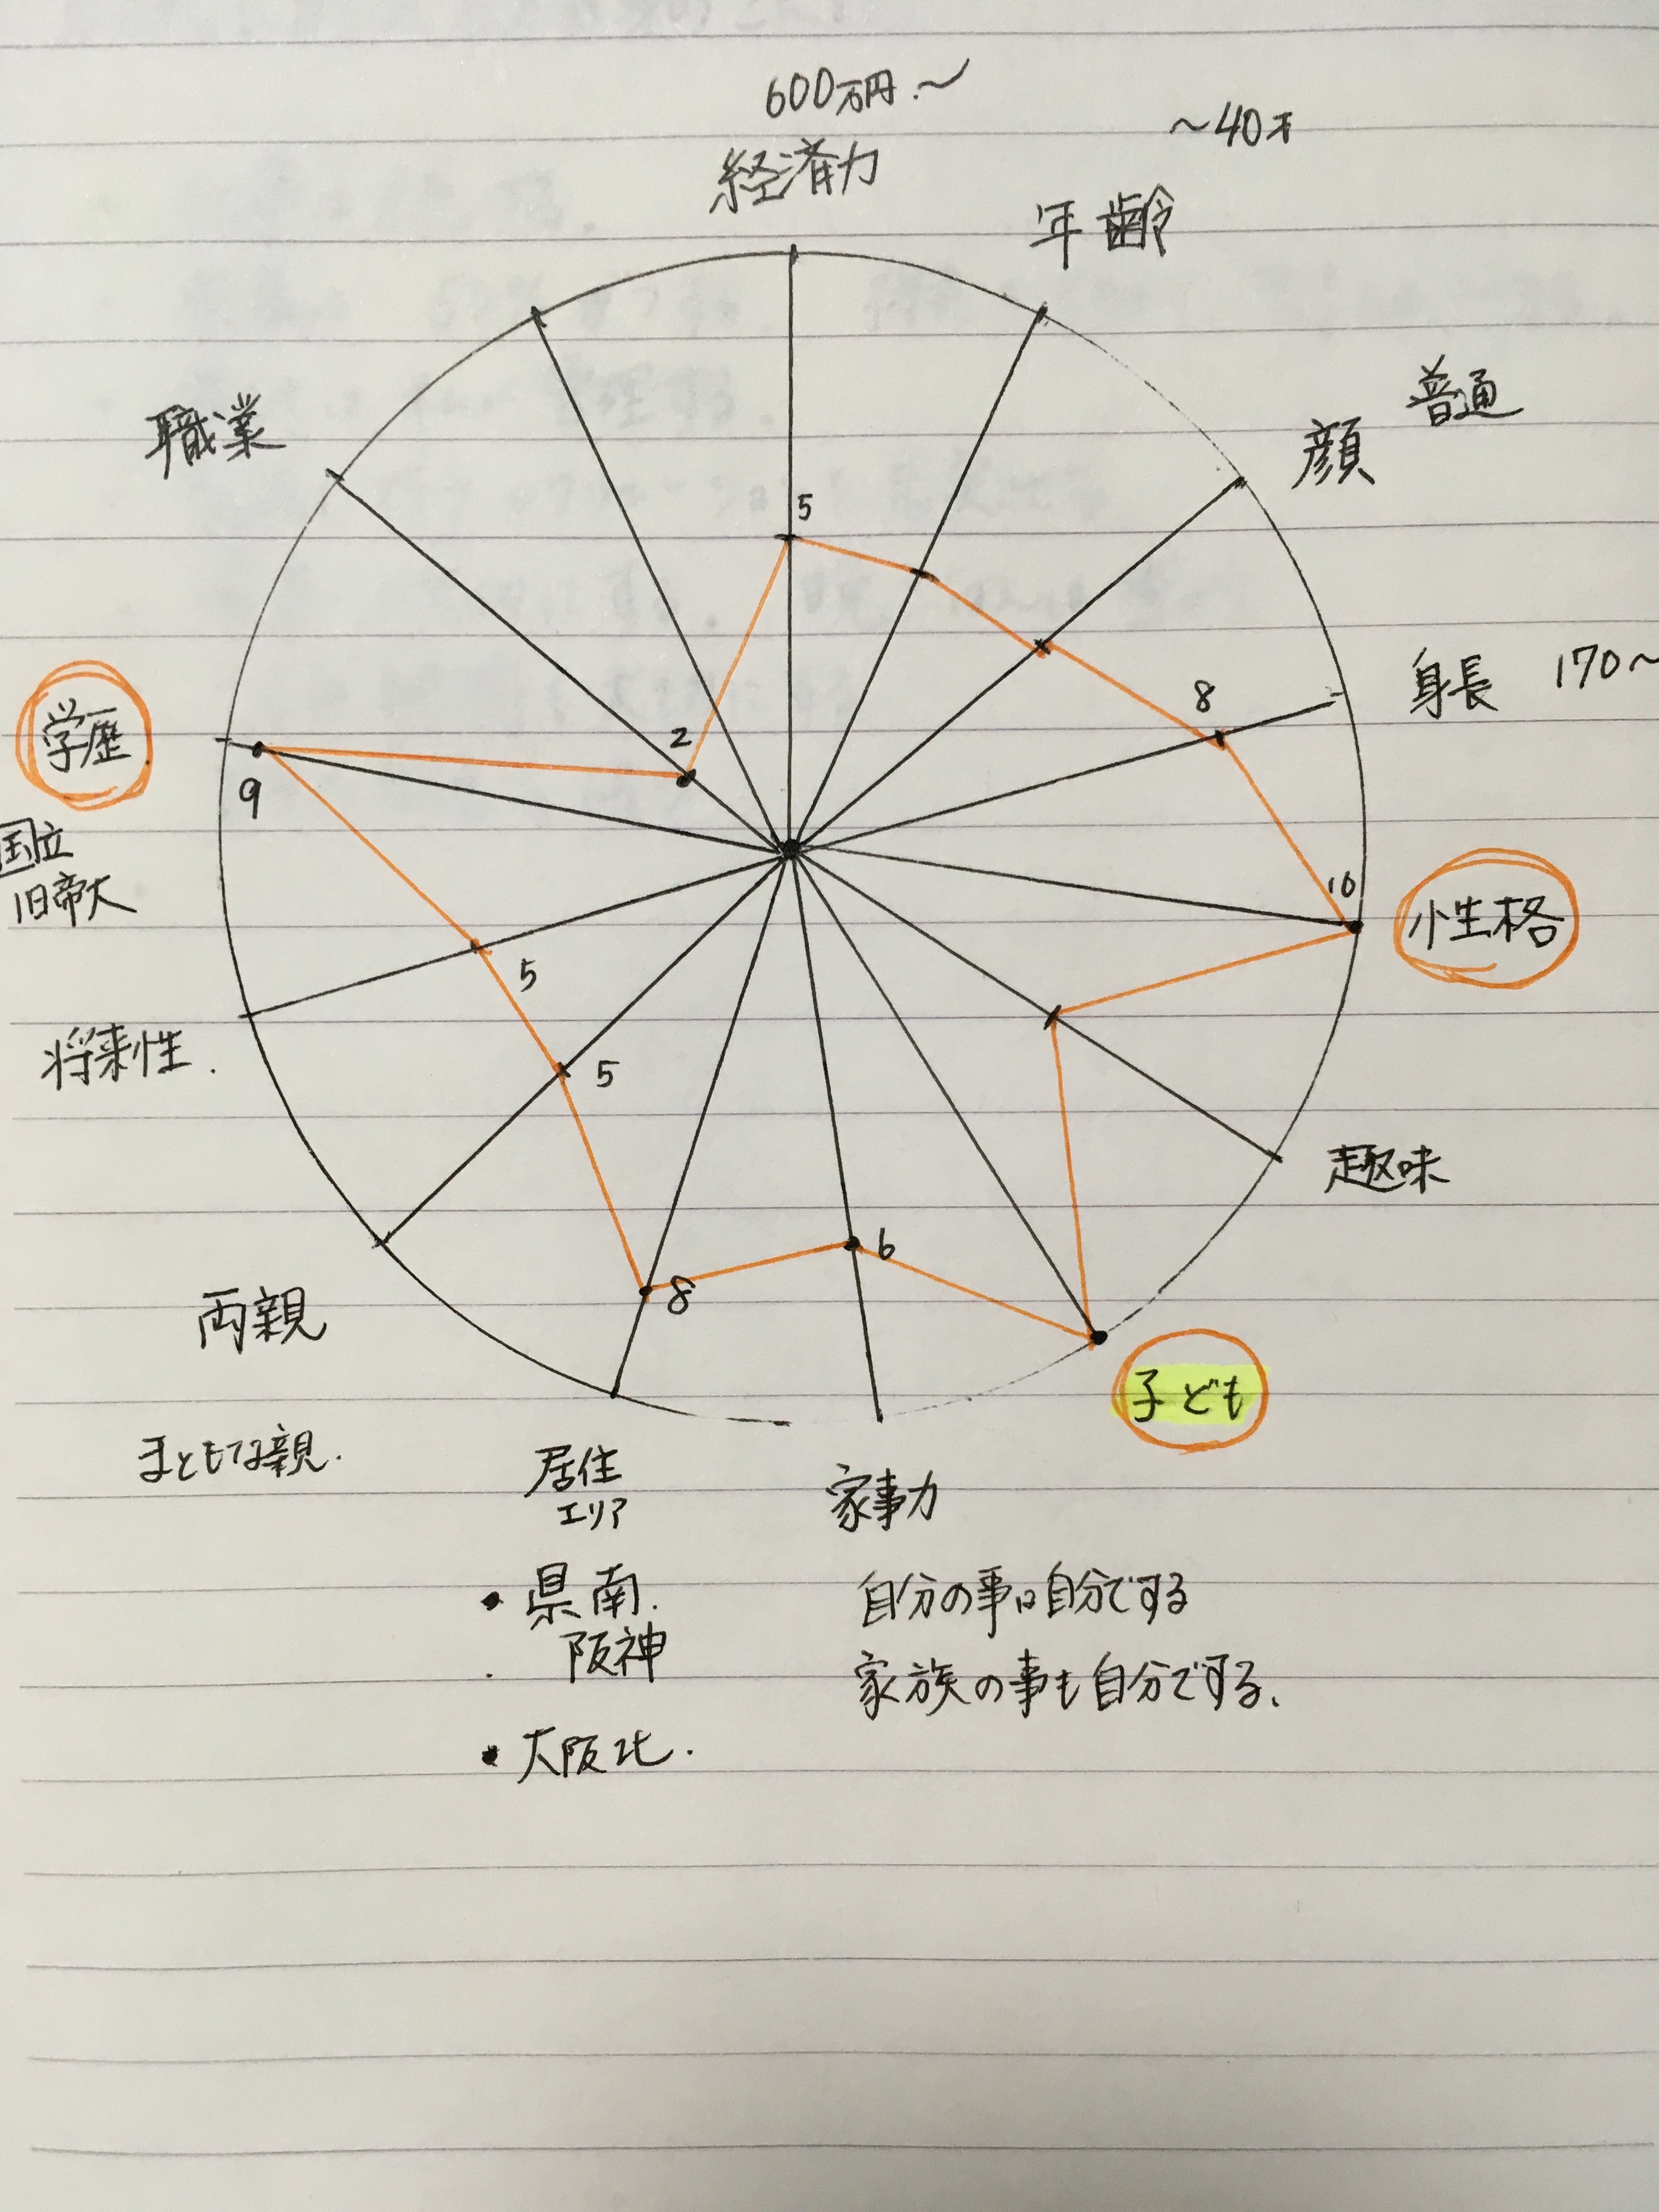 600万円.~
~40才
経済力
年齢
普通
顔
職業
5
身長 170~
8
学歴
2
9
10
性格
国立
旧帝大
5
将来性.
5
趣味
6
8
両親
子ども
まともな親.
居住
エリア
家事力
・県南.
阪神
・大阪北.
自分の事は自分でする
家族の事も自分でする、